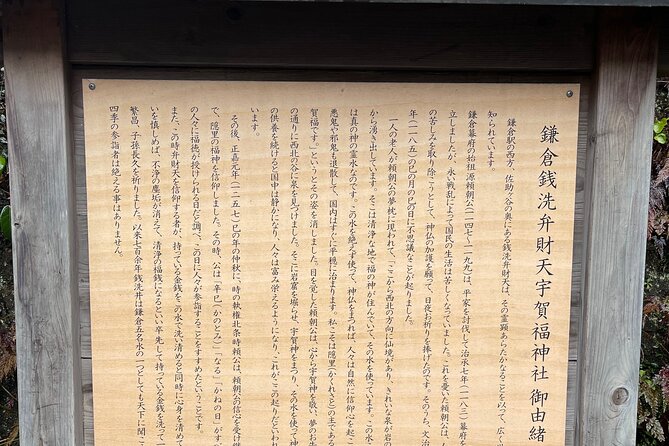 鎌倉銭洗弁財天宇賀福神社 御由緒
鎌倉駅の西方、佐助ヶ谷の奥にある銭洗弁財天は、その霊顕あらたかなることを以て、広く
知られています。
鎌倉幕府の始祖源頼朝公(一一四七~一一九九)は、平家を討伐して治承七年(一一八三)幕府を
立しましたが、永い戦乱によって国民の生活は苦しくなっていました。これを憂いた頼朝公は、
の苦しみを取り除こうとして、神仏の加護を願って、日夜お祈りを捧げたのです。そのうち、文治
年(一一八五)の巳の月の巳の日に不思議なことが起りました。
一人の老人が頼朝公の夢枕に現われて、"ここから西北の方向に仙境があり、きれいな泉が岩の
から湧き出しています。そこは清浄な地で福の神が住んでいて、その水を使っています。この水
は真の神の霊水なのです。この水を絶えず使って、神仏をまつれば、人々は自然に信仰心を起こ
悪鬼や邪鬼も退散して、国内はすぐに平穏に治まります。私こそは隠里(かくれざと)の主である
賀福です。"というとその姿を消しました。目を覚した頼朝公は、心から宇賀神を敬い、夢のお
の通りに西北の谷に泉を見つけました。そこに岩窟を堀らせ、宇賀神をまつり、その水を使って神
の供養を続けると国中は静かになり、人々は富み栄えるようになり、これがこの起りだといわれ
います。
その後、正嘉元年(一二五七)巳の年の仲秋に、時の執権北条時頼公は、頼朝公の信心を受け継
で、隠里の福神を信仰しました。その時、公は"辛巳(かのとみ)"なる"かねの日"がす
の人々に福徳が授けられる日だと調べ、この日に人々が参詣することをすすめたということです。
また、この時弁財天を信仰する者が、持っている金銭をこの水で洗い清めると同時に心身を清めて
いを慎しめば、不浄の塵垢が消えて、清浄の福銭になるといい卒先して持っている金銭を洗って一
繁昌、子孫長久を祈りました。以来七百余年銭洗井は鎌倉五名水の一つとしても天下に聞こ
四季の参詣者は絶える事はありません。